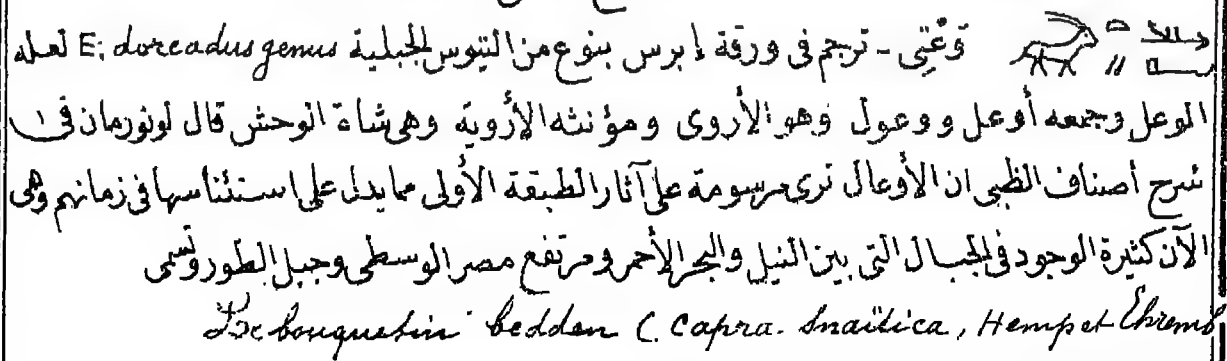 توَعّتِى - ترجم فى ورقة إبرس بنوع من التيوس الجبلية E: dorcadus genus لعله
الوعل وجمعه أوعل ووعول وهو الأروى ومؤنثه الأروية وهى شاة الوحش قال لونورمان فى
شرح أصناف الظبى ان الأوعال ترى مرسومة على آثار الطبقة الأولى مما يدل على استئناسها فى زمانهم وهى
الآن كثيرة الوجود فى الجبال التى بين النيل والبحر الأحمر ومرتفع مصر الوسطى وجبل الطور وتسمى
bouquetin bedden ( Capra. Snaïtica, Hemp et Ehremb